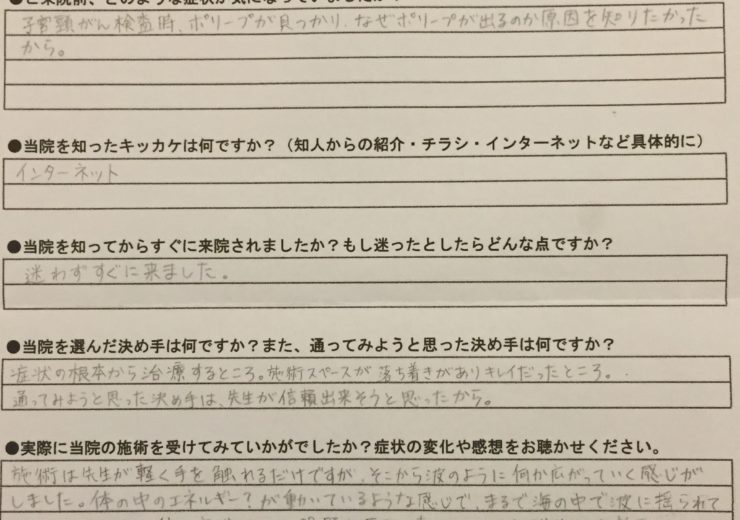 ●ご来院前、どのような症状が気になっていましたか？
子宮頸がん検査時、ポリープが見つかり、なぜポリープが出るのか原因を知りたかった
から。
●当院を知ったキッカケは何ですか？（知人からの紹介・チラシ・インターネットなど具体的に）
インターネット
●当院を知ってからすぐに来院されましたか？もし迷ったとしたらどんな点ですか？
迷わずすぐに来ました。
●当院を選んだ決め手は何ですか？また、通ってみようと思った決め手は何ですか？
症状の根本から治療するところ。施術スペースが落ち着きがありキレイだったところ。
通ってみようと思った決め手は、先生が信頼出来そうと思ったから。
●実際に当院の施術を受けてみていかがでしたか？症状の変化や感想をお聴かせください。
施術は先生が軽く手を触れるだけですが、そこから波のように何か広がっていく感じが
しました。体の中のエネルギー？が動いているような感じで、まるで海の中で波に揺られて